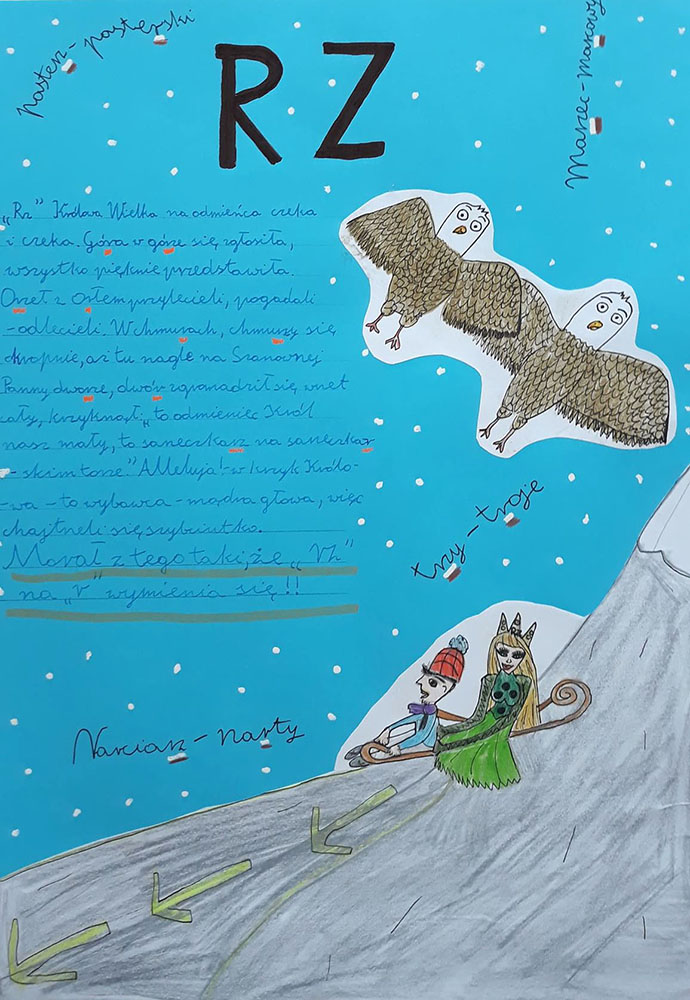 Pasterz - pasterski
Marzec - Marcowy
RZ
„Rz" Królowa Wielka na odmieńca czeka
i czeka. Góra w górze się zgłosiła,
wszystko pięknie przedstawiła.
Orzeł z Orłem przylecieli, pogadali
- odlecieli. W chmurach, chmurzy się
okropnie, aż tu nagle na Szanownej
Panny dworze, dwór zgromadził się wnet
cały, krzyknął: „to odmieniec Król
nasz mały, to saneczkarz na saneczkar
- skim torze" Alleluja! - w krzyk Królo-
- wa - to wybawca - mądra głowa, więc
chajtneli się szybciutko.
Morał z tego taki, że „Rz"
na „r" wymienia się!!
trzy - troje
Narciarz - narty